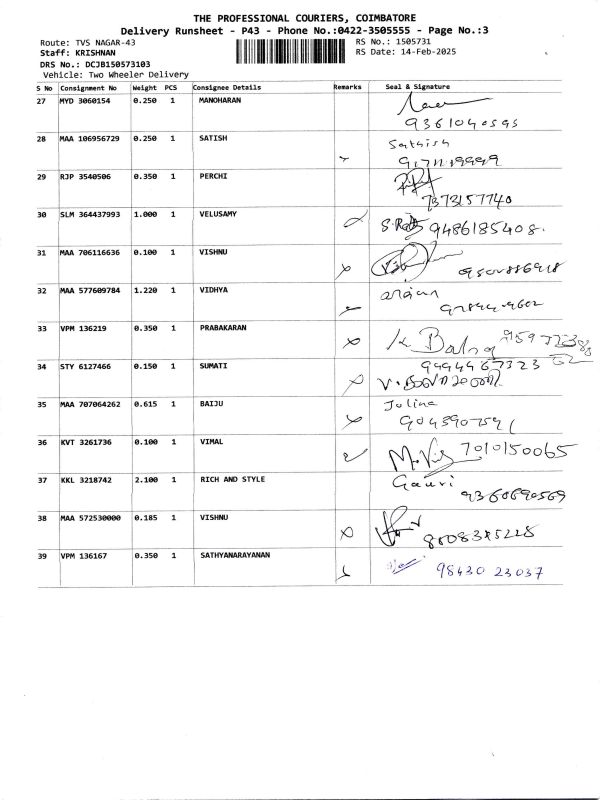 THE PROFESSIONAL COURIERS, COIMBATORE
Delivery Runsheet - P43 - Phone No.:0422-3505555 - Page No.:3
Route: TVS NAGAR-43 RS No.: 1505731
Staff: KRISHNAN RS Date: 14-Feb-2025
DRS No.: DCJB150573103
Vehicle: Two Wheeler Delivery
S No Consignment No Weight PCS Consignee Details Remarks Seal & Signature
27 MYD 3060154 0.250 1 MANOHARAN
28 MAA 106956729 0.250 1 SATISH Sathish
29 RJP 3540506 0.350 1 PERCHI
7373157740
30 SLM 364437993 1.000 1 VELUSAMY 9486185408.
31 MAA 706116636 0.100 1 VISHNU
32 MAA 577609784 1.220 1 VIDHYA
33 VPM 136219 0.350 1 PRABAKARAN
34 STY 6127466 0.150 1 SUMATI
35 MAA 707064262 0.615 1 BAIJU
36 KVT 3261736 0.100 1 VIMAL 7010150065
37 KKL 3218742 2.100 1 RICH AND STYLE Gauri
9360690569
38 MAA 572530000 0.185 1 VISHNU
39 VPM 136167 0.350 1 SATHYANARAYANAN
98430 23037